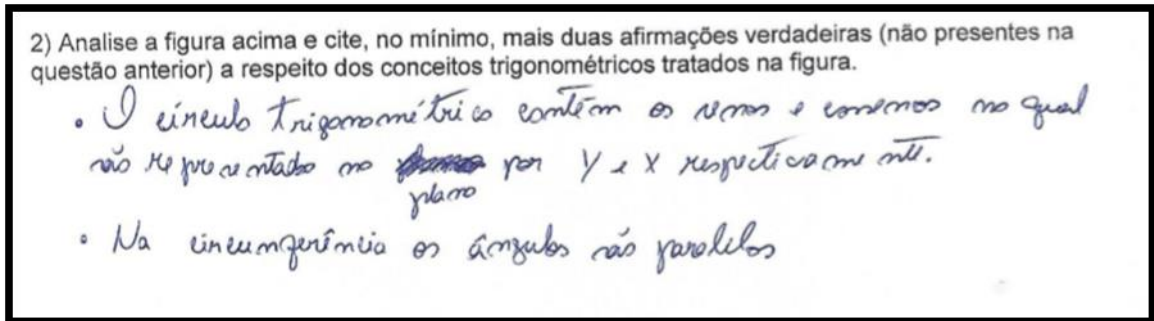 2) Analise a figura acima e cite, no mínimo, mais duas afirmações verdadeiras (não presentes na
questão anterior) a respeito dos conceitos trigonométricos tratados na figura.
• O círculo trigonométrico contêm os senos e cossenos no qual
são representados no por Y e X respectivamente.
plano
• Na circunferência os ângulos são paralelos